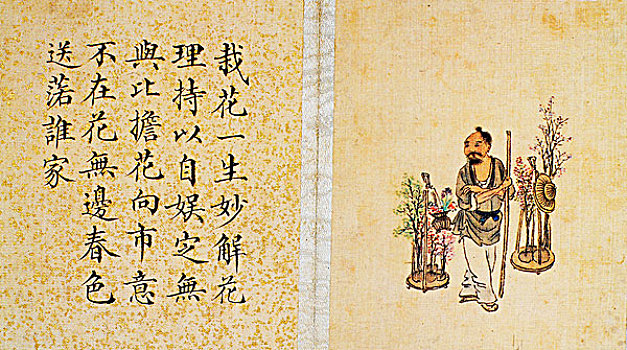 栽花一生妙解花
理持以自娱定無
與比擔花向市意
不在花無邊春色
送落誰家